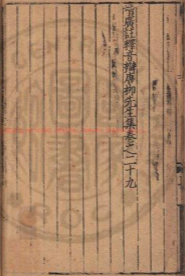 增廣註釋音辯唐柳先生集卷之二十九